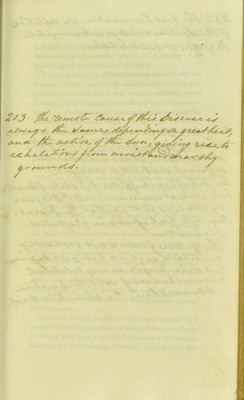 213. The remote Cause of this Disease is
always the same; depending on great heat,
and the action of the Sun, giving rise to
exhalations from moist and marshy
grounds.